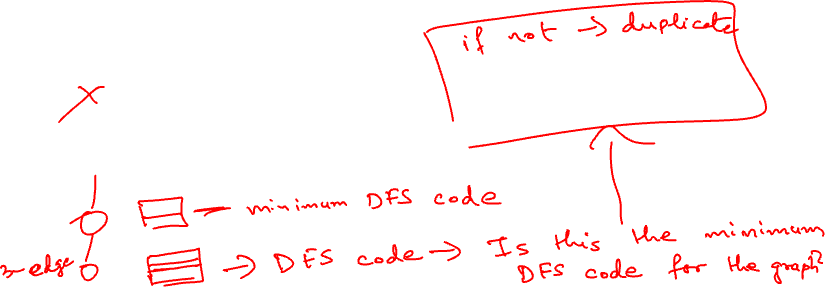 if not → duplicate
minimum DFS code
3-edge → DFS code → Is this the minimum
DFS code for the graph?